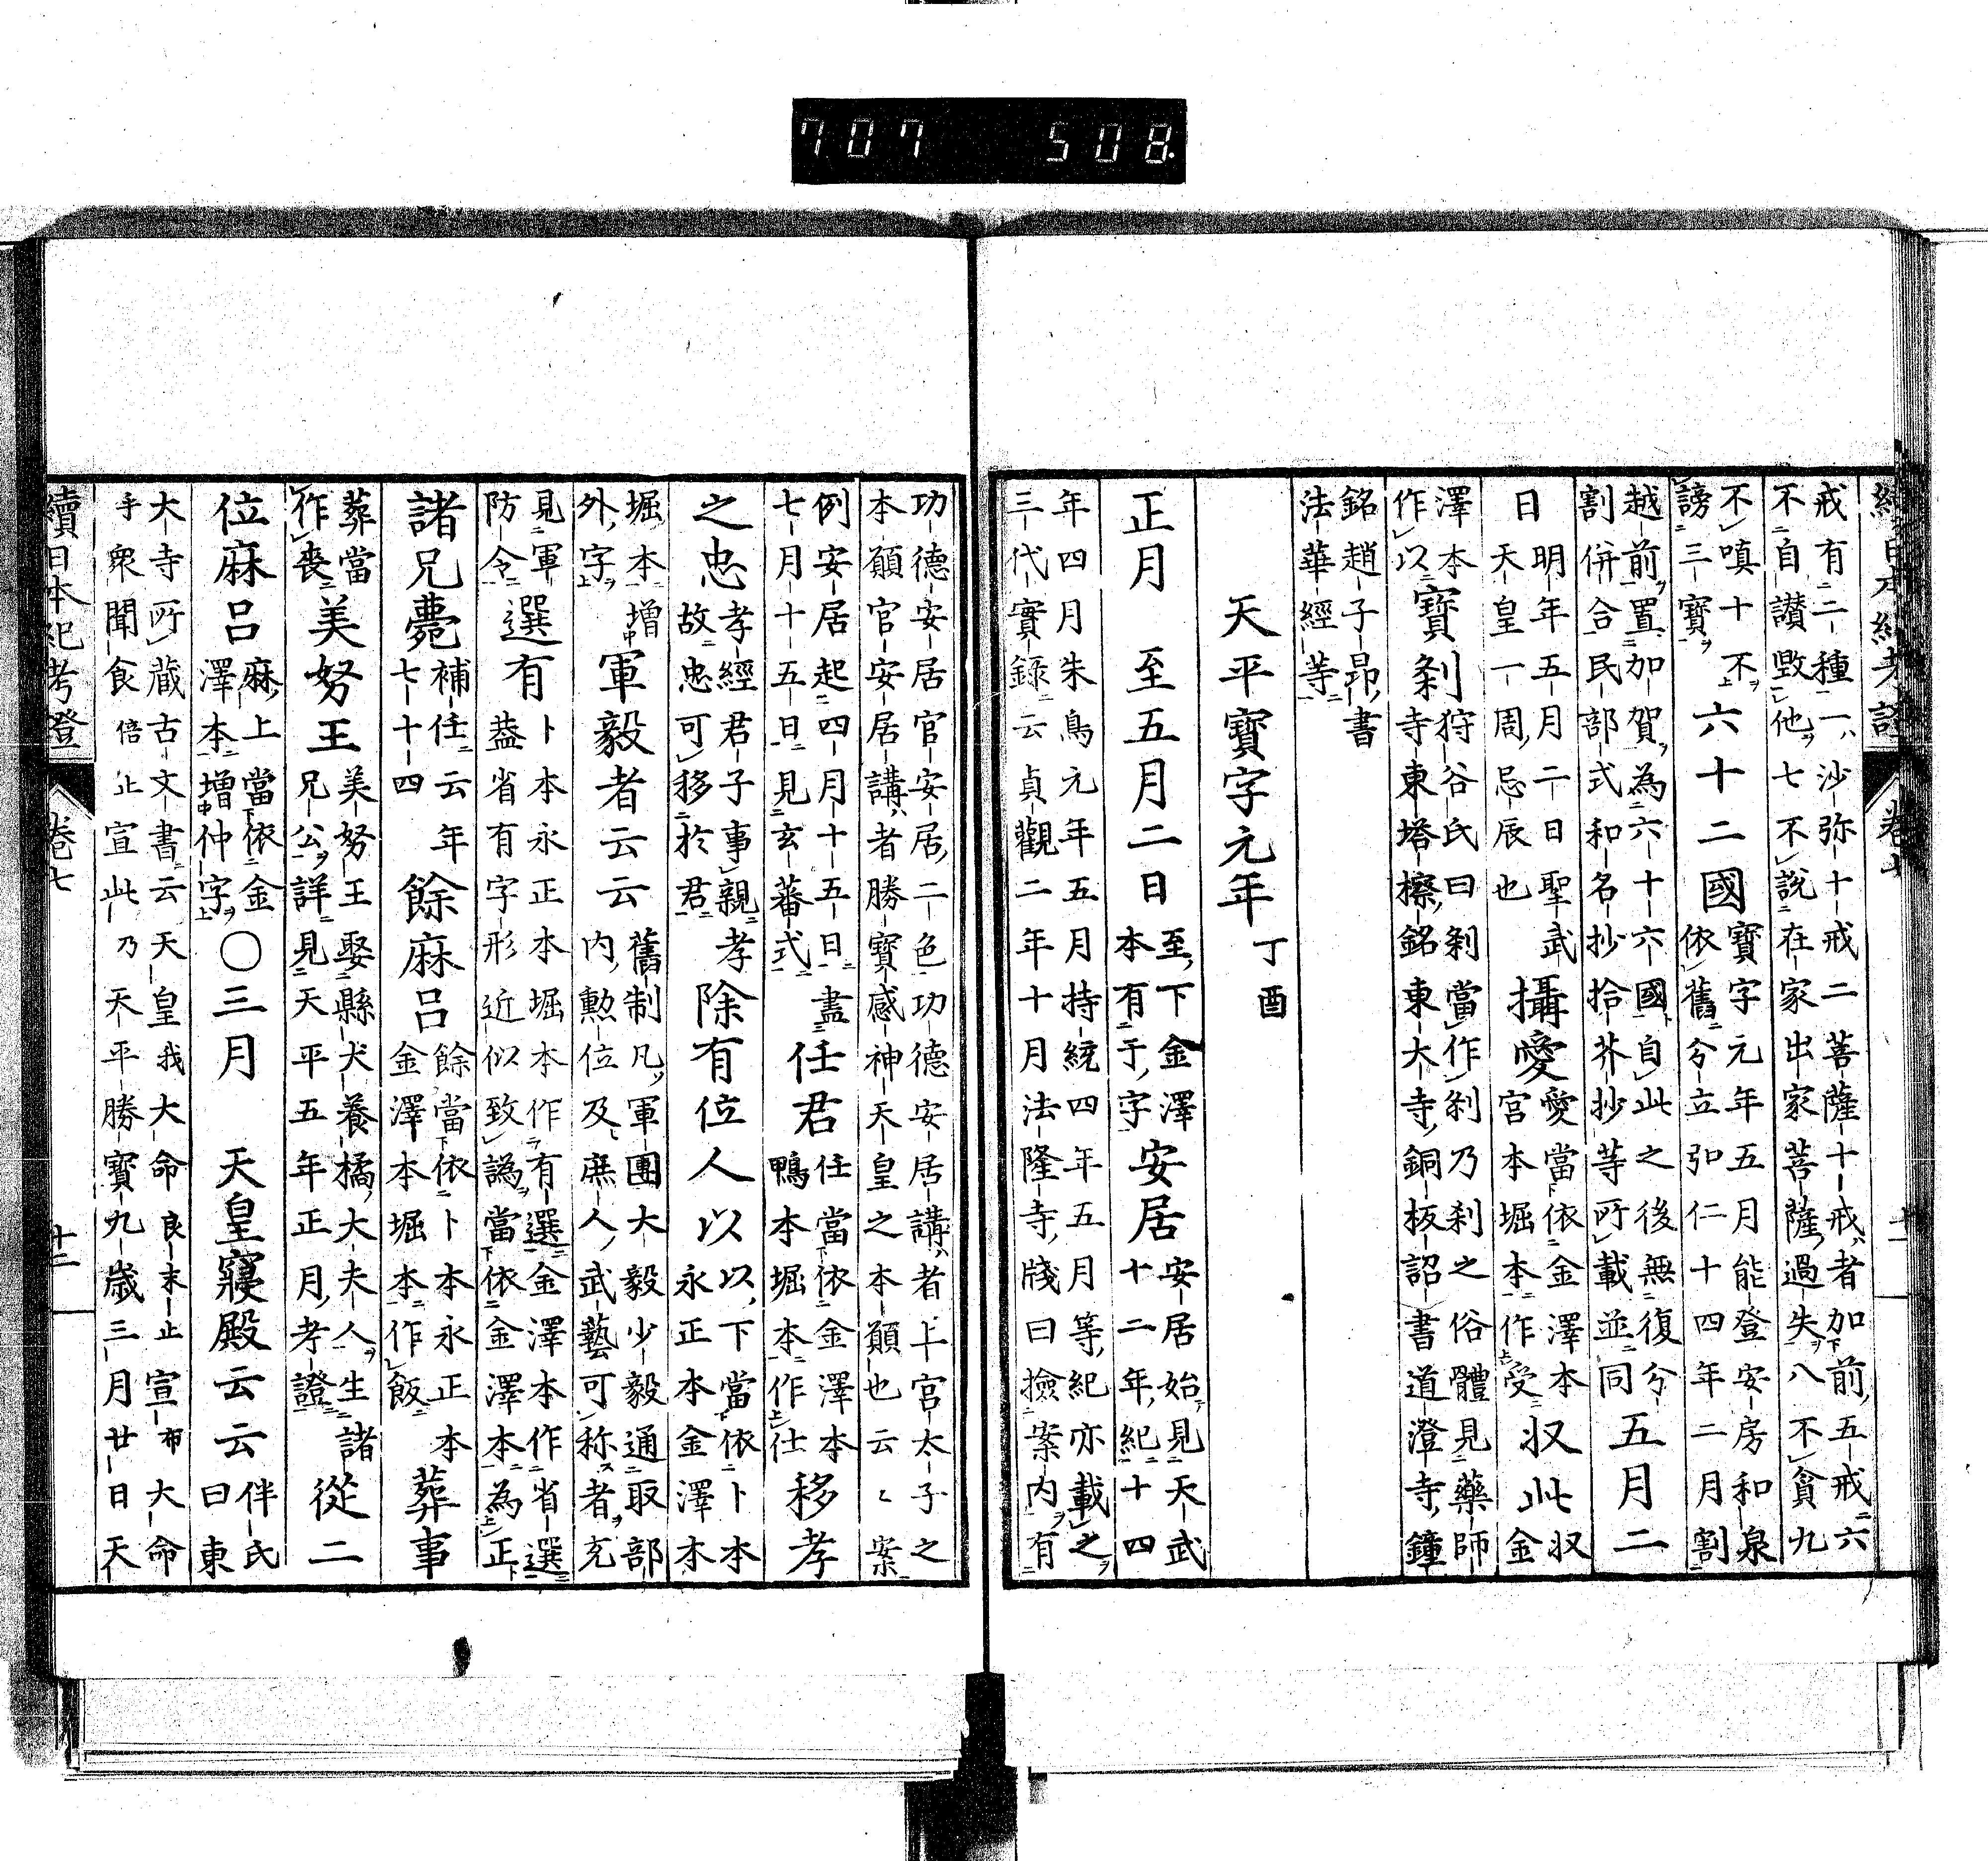 707 508
續日本紀考證 卷七 十一
戒有二種一沙弥十戒二菩薩十戒者加前五戒六
不自讃毀他七不說在家出家菩薩過失八不貪九
不嗔十不
謗三寶
六十二國
寶字元年五月能登安房和泉
依舊分立弘仁十四年二月割
越前置加賀為六十六國自此之後無復分
割併合民部式和名抄拾芥抄等所載並同
五月二
日
明年五月二日聖武
天皇一周忌辰也
攝愛
愛當依金澤本
宮本堀本作受
収此
収金
澤本
作以
寶剎
狩谷氏曰剎當作刹乃刹之俗體見藥師
寺東塔檫銘東大寺銅板詔書道澄寺鐘
銘趙子昂書
法華經等
天平寶字元年丁酉
正月 至五月二日
至下金澤
本有于字
安居
安居始見天武
十二年紀十四
年四月朱鳥元年五月持統四年五月等紀亦載之
三代實錄云貞觀二年十月法隆寺牋曰撿案內有
功德安居官安居二色功德安居講者上宮太子之
本願官安居講者勝寶感神天皇之本願也云〻案
例安居起四月十五日盡
七月十五日見玄蕃式
任君
任當依金澤本
鴨本堀本作仕
移孝
之忠
孝經君子事親孝
故忠可移於君
除有位人以
以下當依卜本
永正本金澤本
堀本增
外字
軍毅者云云
舊制凡軍團大毅少毅通取部
内勲位及庶人武藝可称者充
見軍
防令
選有
卜本永正本堀本作有選金澤本作省選
葢省有字形近似致譌當依金澤本為正
諸兄薨
補任云年
七十四
餘麻呂
餘當依卜本永正本
金澤本堀本作飯
葬事
葬當
作喪
美努王
美努王娶縣犬養橘大夫人生諸
兄公詳見天平五年正月考證
從二
位麻呂
麻上當依金
澤本增仲字
○三月 天皇寢殿云云
伴氏
曰東
大寺所藏古文書云天皇我大命良末止宣布大命
乎衆聞食倍止宣此乃天平勝寶九歲三月廿日天
續日本紀考證 卷七 十二